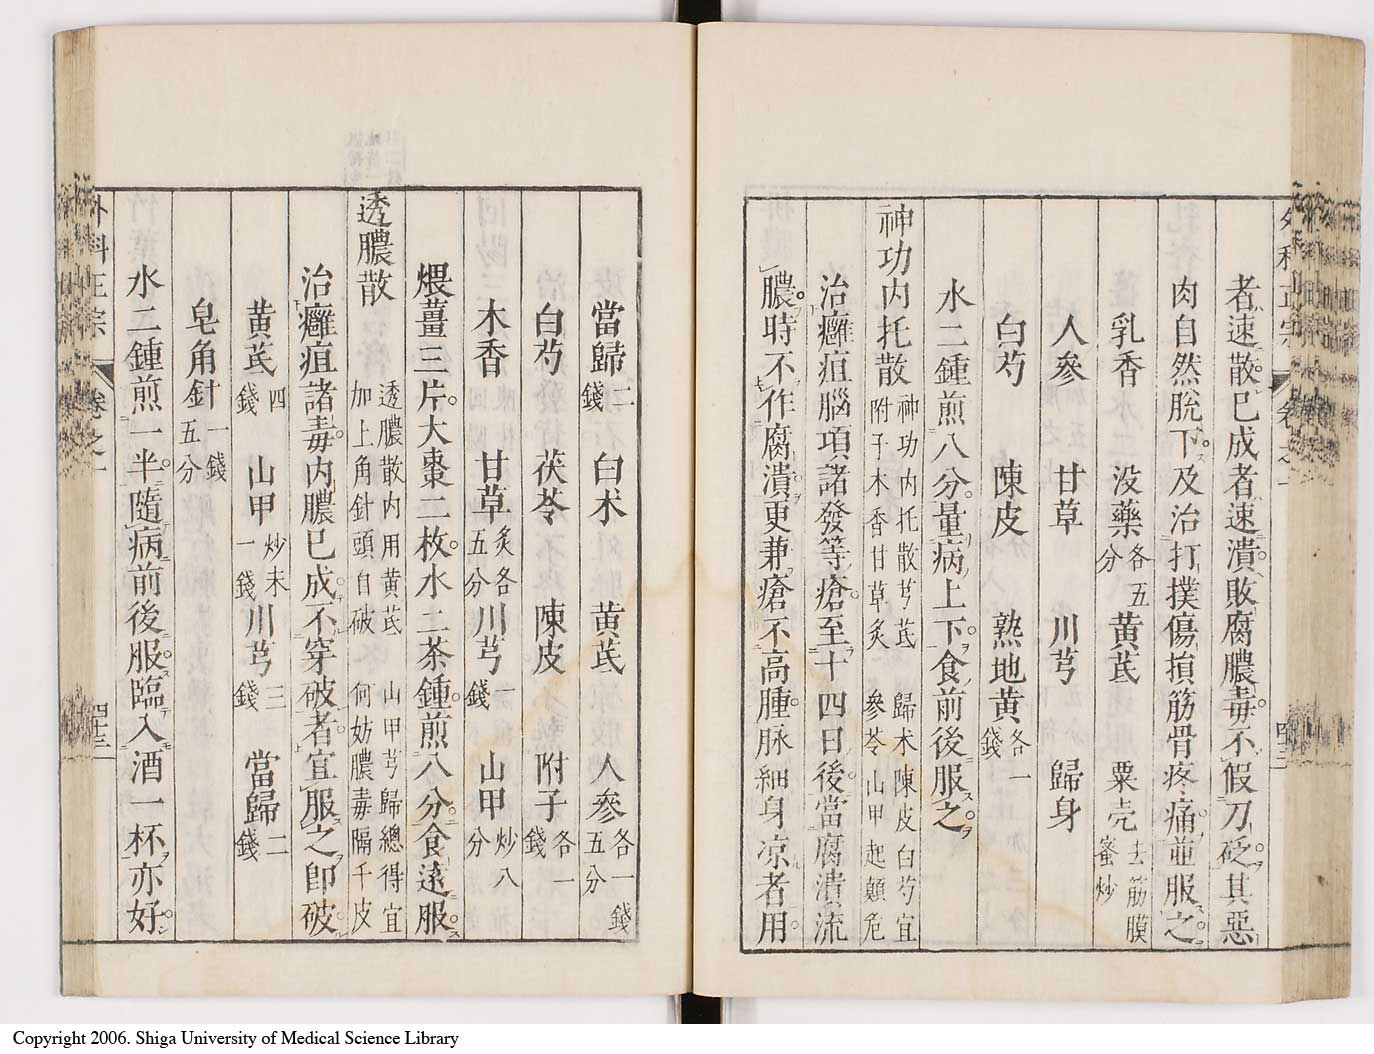 者速散已成者速潰敗腐膿毒不假刀砭其惡
肉自然脫下及治打撲傷損筋骨疼痛並服之
乳香 没藥各五分 黄芪 粟壳去筋膜蜜炒
人參 甘草 川芎 歸身
白芍 陳皮 熟地黄各一錢
水二鍾煎八分量病上下食前後服之
神功内托散神功内托散芎芪 歸术陳皮白芍宜
附子木香甘草炙 參苓山甲起顛危
治癰疽腦項諸發等瘡至十四日後當腐潰流
膿時不作腐潰更兼瘡不高腫脉細身凉者用
當歸二錢 白术 黄芪 人參各一錢五分
白芍 茯苓 陳皮 附子各一錢
木香 甘草炙各五分 川芎一錢 山甲炒八分
煨薑三片大棗二枚水二茶鍾煎八分食遠服
透膿散 透膿散内用黄芪 山甲芎歸總得宜
加上角針頭自破 何妨膿毒隔千皮
治癰疽諸毒内膿已成不穿破者宜服之即破
黄芪四錢 山甲炒末一錢 川芎三錢 當歸二錢
皂角針一錢五分
水二鍾煎一半隨病前後服臨入酒一杯亦好
外科正宗 卷之一
Copyright 2006. Shiga University of Medical Science Library